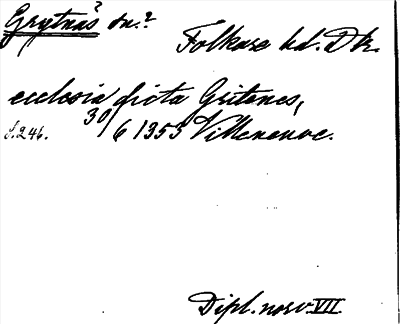 Grytnäs? sn.?
Folkare hd. Dlr.
ecclesia dicta Gritenes,
s. 246. 30/6 1353 Villeneuve.
Dipl. norv. VII